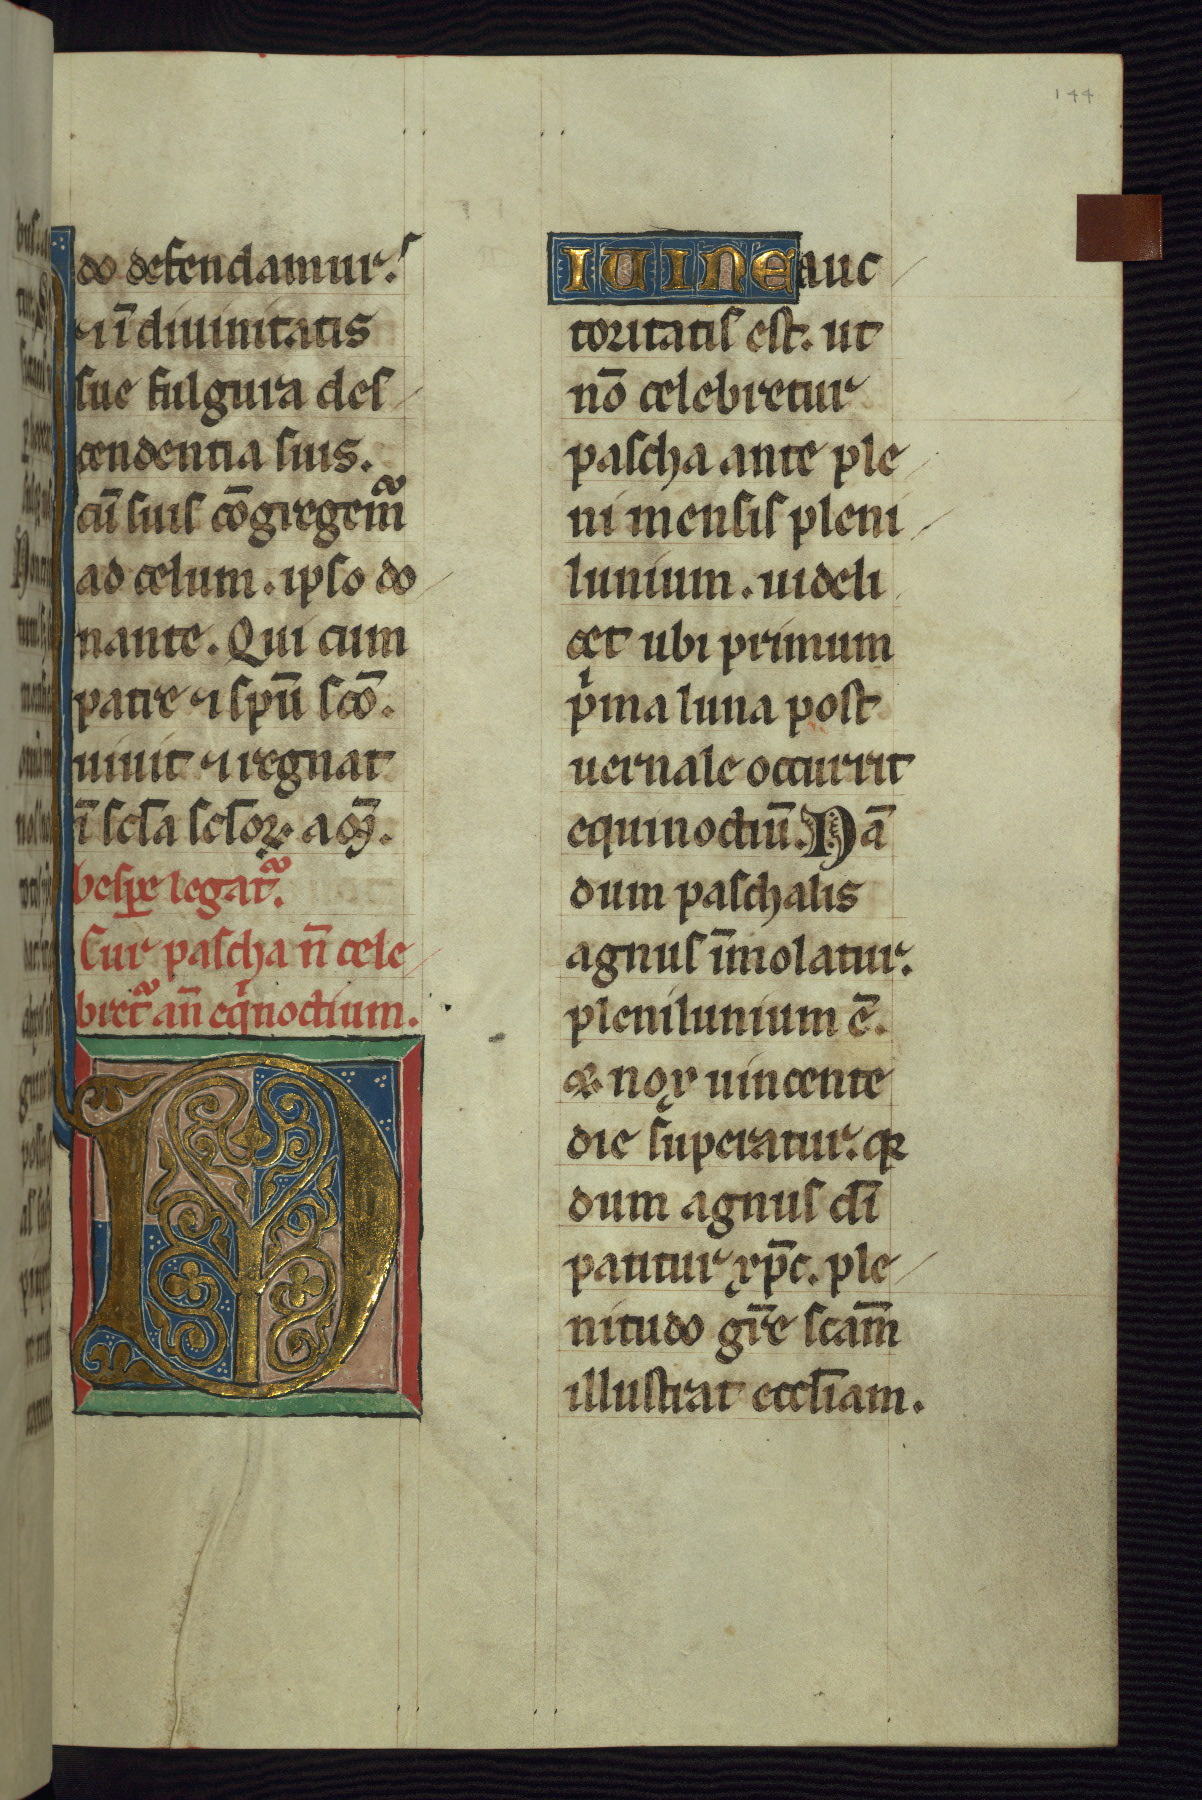 144
do defendamur.
⁊ ī diuinitatis
sue fulgura des
cendentia suis.
cū suis cōgregem̃
ad celum. ipso do
nante. Qui cum
patre ⁊ spū sc̄o.
uiuit ⁊ regnat
ī sc̄la sc̄loꝝ. am̄.
vesꝑe legat̃.
Cur pascha n̄ cele
bret̃ an̄ eqͥnoctium.
DIUINE auc
toritatis est. ut
nō celebretur
pascha ante ple
ni mensis pleni
lunium. uideli
cet ubi primum
pͥma luna post
uernale occurrit
equinoctiū. Nā
dum paschalis
agnus īmolatur.
plenilunium ē.
⁊ nox uincente
die superatur. qꝛ
dum agnus dī
patitur xp̄c. ple
nitudo gr̄e sc̄am
illustrat eccl̄iam.